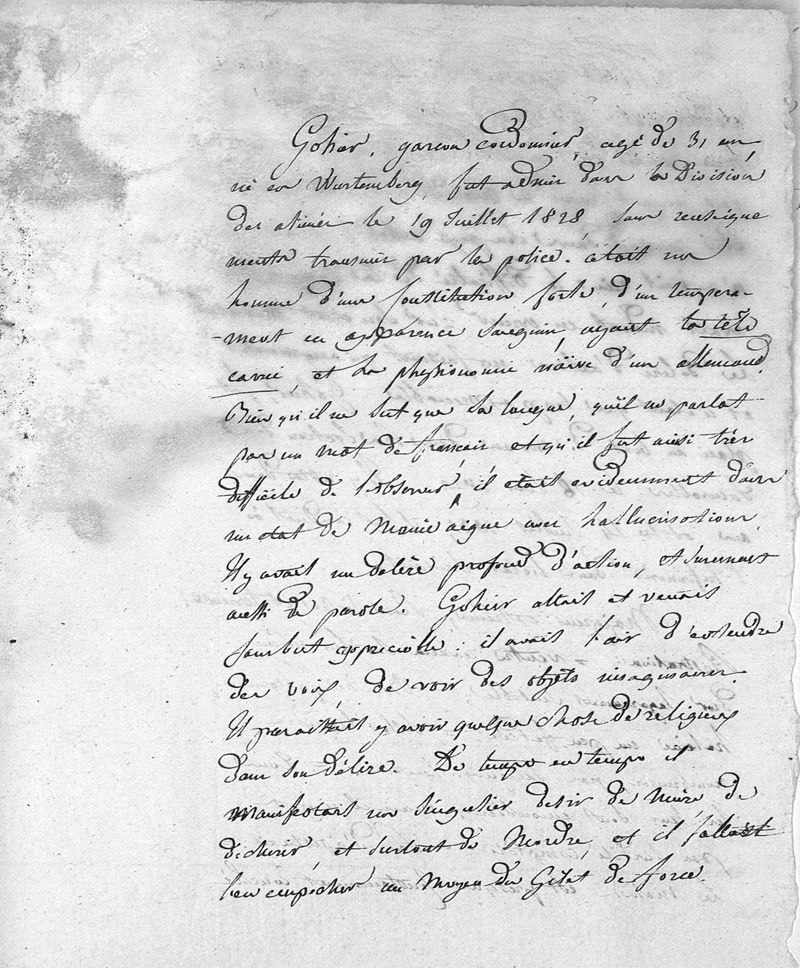 Gohier, garcon cordonnier, agé de 31 ans,
né en Wurtemberg, fut admis dans la Division
des aliénés le 19 Juillet 1828, sans renseigne
ments transmis par la police. c'était un
homme d'une constitution forte, d'un tempera-
-ment en apparence sanguin, ayant la tête
carrée, et la physionomie naïve d'un allemand.
Bien qu'il ne sut que sa langue, qu'il ne parlat
pas un mot de français, et qu'il fut ainsi très
difficile de l'observer, il était evidemment dans
un état de Manie aigue avec hallucinations.
Il y avait un délire profond d'action, et surement
aussi de parole. Gohier allait et venait
sans but appreciable : il avait l'air d'entendre
des voix, de voir des objets imaginaires.
Il paraissait y avoir quelque chose de religieux
dans son délire. De temps en temps il
manifestait un singulier desir de nuire, de
dechirer, et surtout de Mordre, et il fallait
l'en empecher au Moyen du Gilet de force.